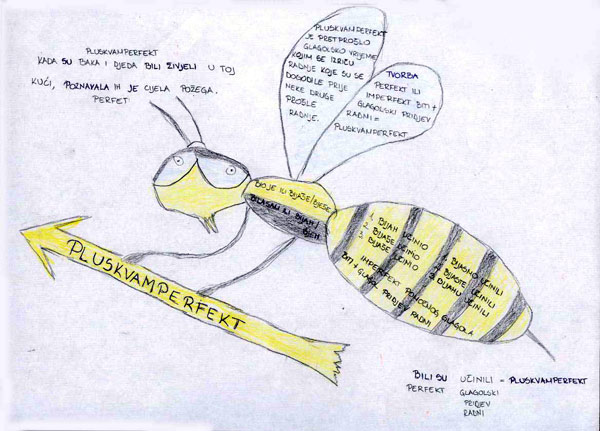 PLUSKVAMPERFEKT
KADA SU BAKA I DJEDA BILI ŽIVJELI U TOJ
KUĆI, POZNAVALA IH JE CIJELA POŽEGA.
PERFET
PLUSKVAMPERFEKT
JE PRETPROŠLO
GLAGOLSKO VRIJEME
KOJIM SE IZRIČU
RADNJE KOJE SU SE
DOGODILE PRIJE
NEKE DRUGE
PROŠLE
RADNJE.
TVORBA
PERFEKT ILI
IMPERFEKT BITI +
GLAGOLSKI PRIDJEV
RADNI =
PLUSKVAMPERFEKT
ILI BIJAŠE/BJEŠE
ILI BIJAH/
BEH
1. BIJAH UČINIO
2. BIJAŠE UČINIO
3. BIJAŠE UČINIO
1. BIJASMO UČINILI
2. BIJASTE UČINILI
3. BIJAHU UČINILI
IMPERFEKT POMOĆNOG GLAGOLA
BITI + GLAGOL. PRIDJEV RADNI
PLUSKVAMPERFEKT
BILI SU UČINILI = PLUSKVAMPERFEKT
PERFEKT GLAGOLSKI
PRIDJEV
RADNI